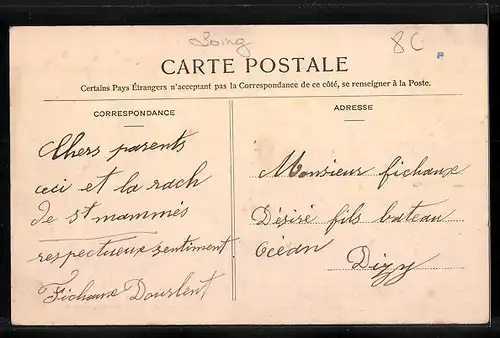 Loing
8C
CARTE POSTALE
Certains Pays Étrangers n'acceptant pas la Correspondance de ce côté, se renseigner à la Poste.
CORRESPONDANCE
Chers parents
ceci et la rach
de st mammés
respectueux sentiment
Fichaux Dourlent
ADRESSE
Monsieur fichaux
Désiré fils bateau
Océan
Dizy